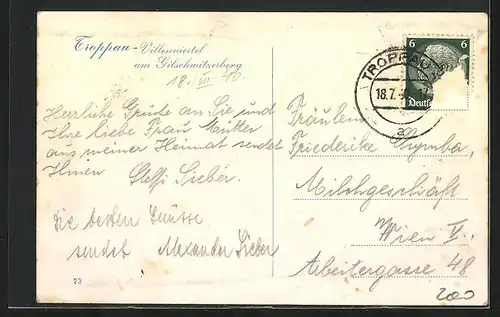 Troppau - Villenviertel
am Gilschwitzerberg
18. VII. 40.
Herzliche Grüße an Sie und
Ihre liebe Frau Mutter
aus meiner Heimat sendet
Ihnen Steffi Sieber.
Die besten Grüsse
sendet Alexander Sieber
23
6 6
TROPPAU
18.7.
a
Deutsch
Fräulein
Friederike
Milchgeschäft
Wien V.,
Arbeitergasse 48
200